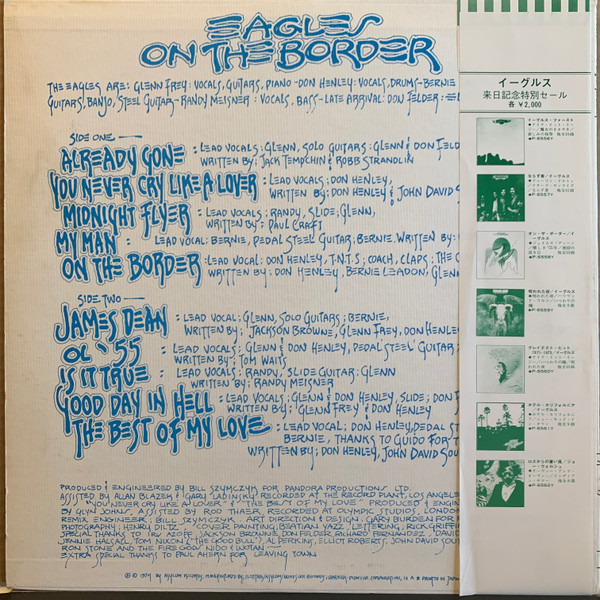 EAGLES
ON THE BORDER
THE EAGLES ARE: GLENN FREY: VOCALS, GUITARS, PIANO - DON HENLEY: VOCALS, DRUMS - BERNIE
GUITARS, BANJO, STEEL GUITAR - RANDY MEISNER: VOCALS, BASS - LATE ARRIVAL: DON FELDER:
SIDE ONE
ALREADY GONE : LEAD VOCALS: GLENN, SOLO GUITARS: GLENN & DON FELD
WRITTEN BY: JACK TEMPCHIN & ROBB STRANDLIN
YOU NEVER CRY LIKE A LOVER : LEAD VOCALS; DON HENLEY,
WRITTEN BY; DON HENLEY & JOHN DAVID S
MIDNIGHT FLYER : LEAD VOCALS; RANDY, SLIDE; GLENN,
WRITTEN BY: PAUL CRAFT
MY MAN : LEAD VOCAL: BERNIE, PEDAL STEEL GUITAR: BERNIE. WRITTEN BY:
ON THE BORDER : LEAD VOCAL: DON HENLEY, T.N.T.S; COACH, CLAPS; THE
WRITTEN BY: DON HENLEY, BERNIE LEADON, GLENN
SIDE TWO
JAMES DEAN : LEAD VOCAL; GLENN, SOLO GUITARS; BERNIE,
WRITTEN BY; JACKSON BROWNE, GLENN FREY, DON HENLEY
OL' 55 : LEAD VOCALS; GLENN & DON HENLEY, PEDAL STEEL GUITAR
WRITTEN BY; TOM WAITS
IS IT TRUE : LEAD VOCALS; RANDY, SLIDE GUITAR; GLENN
WRITTEN BY; RANDY MEISNER
GOOD DAY IN HELL : LEAD VOCALS; GLENN & DON HENLEY, SLIDE; DON F
WRITTEN BY; GLENN FREY & DON HENLEY
THE BEST OF MY LOVE : LEAD VOCAL; DON HENLEY, PEDAL ST
BERNIE, THANKS TO GUIDO FOR T
WRITTEN BY; DON HENLEY, JOHN DAVID SOU
PRODUCED & ENGINEERED BY BILL SZYMCZYK FOR PANDORA PRODUCTIONS LTD.
ASSISTED BY ALLAN BLAZEK & GARY LADINSKY RECORDED AT THE RECORD PLANT, LOS ANGELE
"YOU NEVER CRY LIKE A LOVER" & "THE BEST OF MY LOVE" PRODUCED & ENGIN
BY GLYN JOHNS, ASSISTED BY ROD THAER, RECORDED AT OLYMPIC STUDIOS, LONDON
REMIX ENGINEER; BILL SZYMCZYK. ART DIRECTION & DESIGN: GARY BURDEN FOR
PHOTOGRAPHY; HENRY DILTZ. COVER PAINTING; BEATIAN YAZZ, LETTERING; RICK GRIFFIN
SPECIAL THANKS TO: IRV AZOFF, JACKSON BROWNE, DON FELDER, RICHARD FERNANDEZ, DAVID
JENNIE HALSALL, TOM NIXON ("THE GOOD BULL"), AL PERKINS, ELLIOT ROBERTS, JOHN DAVID SOU
RON STONE AND THE FIRE GOD NIDO & WOTAN
EXTRA SPECIAL THANKS TO PAUL AHERN FOR LEAVING TOWN
イーグルス
来日記念特別セール
各 ¥2,000
イーグルス・ファースト
P-8556Y
ならず者/イーグルス
P-8557Y
オン・ザ・ボーダー/イーグルス
P-8558Y
呪われた夜/イーグルス
P-8559Y
グレイテスト・ヒット
1971-1975/イーグルス
P-8560Y
ホテル・カリフォルニア
/イーグルス
P-8561Y